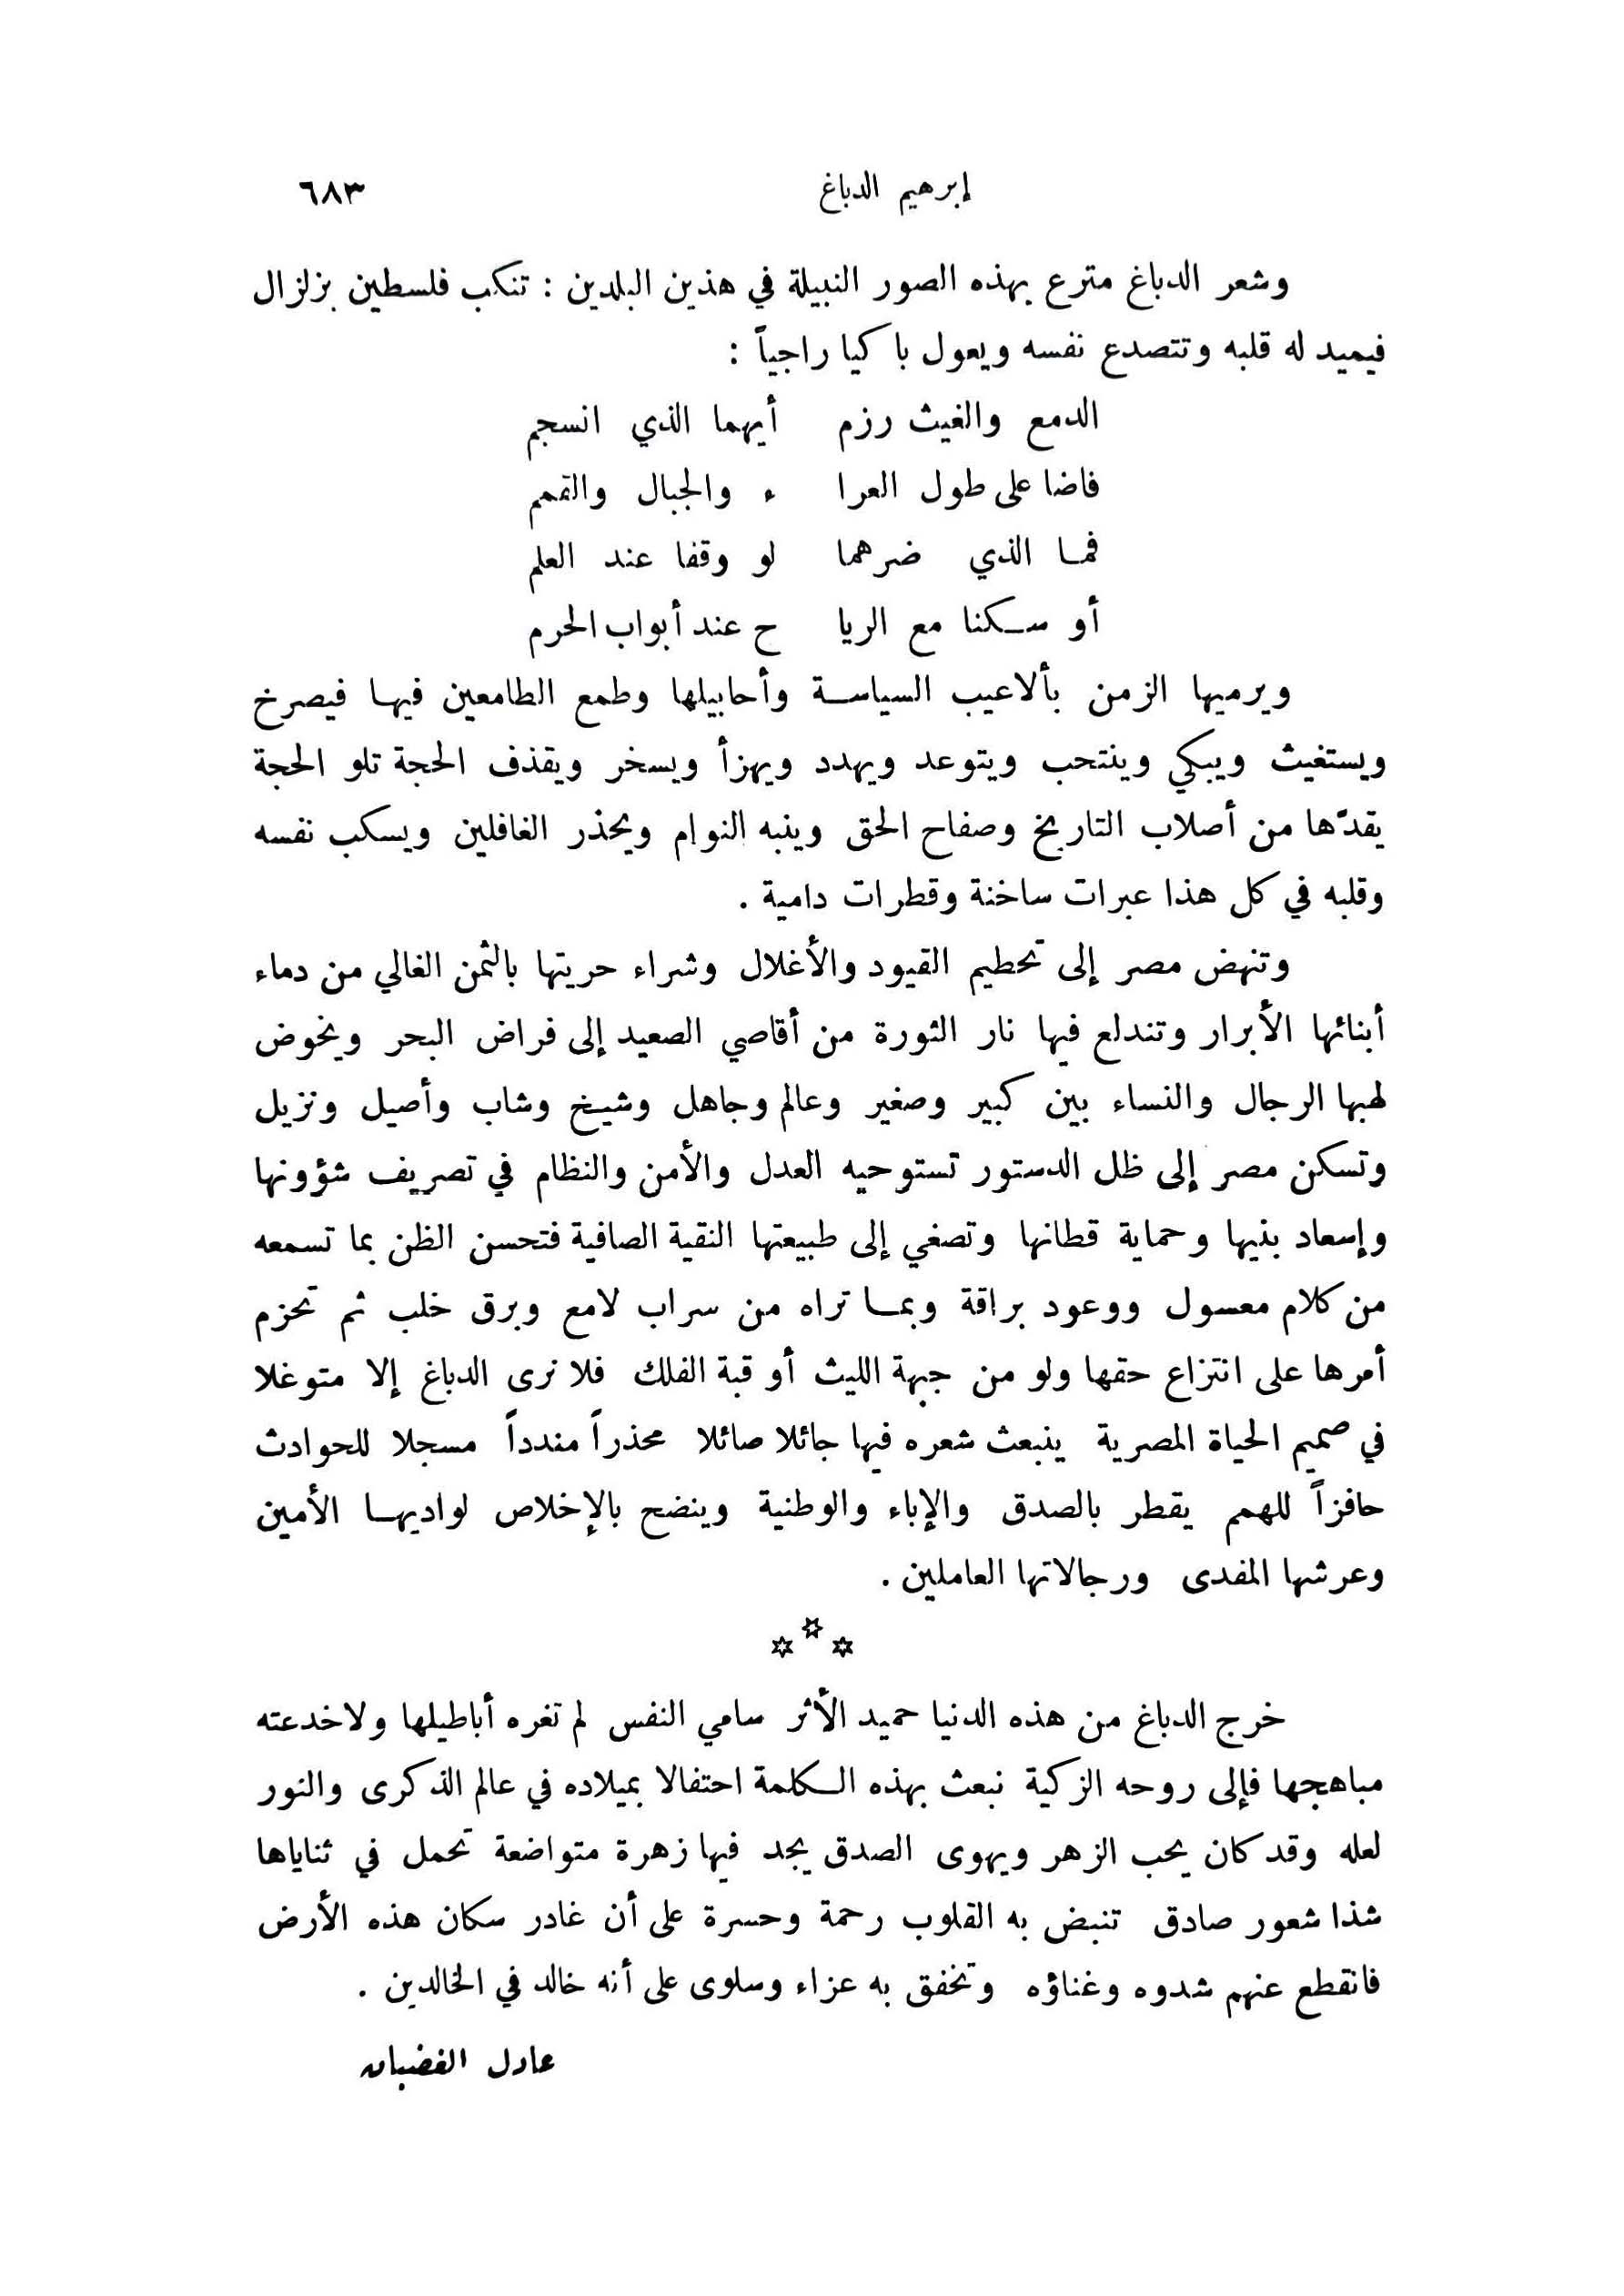 إبرهيم الدباغ ٦٨٣
وشعر الدباغ مترع بهذه الصور النبيلة في هذين البلدين : تنكب فلسطين بزلزال
فيميد له قلبه وتتصدع نفسه ويعول باكيا راجياً :
الدمع والغيث رزم أيهما الذي انسجم
فاضا على طول العرا ء والجبال والقمم
فما الذي ضرهما لو وقفا عند العلم
أو سكنا مع الريا ح عند أبواب الحرم
ويرميها الزمن بألاعيب السياسة وأحابيلها وطمع الطامعين فيها فيصرخ
ويستغيث ويبكي وينتحب ويتوعد ويهدد ويهزأ ويسخر ويقذف الحجة تلو الحجة
يقدّها من أصلاب التاريخ وصفاح الحق وينبه النوام ويحذر الغافلين ويسكب نفسه
وقلبه في كل هذا عبرات ساخنة وقطرات دامية .
وتنهض مصر إلى تحطيم القيود والأغلال وشراء حريتها بالثمن الغالي من دماء
أبنائها الأبرار وتندلع فيها نار الثورة من أقاصي الصعيد إلى فراض البحر ويخوض
لهبها الرجال والنساء بين كبير وصغير وعالم وجاهل وشيخ وشاب وأصيل ونزيل
وتسكن مصر إلى ظل الدستور تستوحيه العدل والأمن والنظام في تصريف شؤونها
وإسعاد بنيها وحماية قطانها وتصغي إلى طبيعتها النقية الصافية فتحسن الظن بما تسمعه
من كلام معسول ووعود براقة وبما تراه من سراب لامع وبرق خلب ثم تحزم
أمرها على انتزاع حقها ولو من جبهة الليث أو قبة الفلك فلا نرى الدباغ إلا متوغلا
في صميم الحياة المصرية ينبعث شعره فيها جائلا صائلا محذراً مندداً مسجلا للحوادث
حافزاً للهمم يقطر بالصدق والإباء والوطنية وينضح بالإخلاص لواديها الأمين
وعرشها المفدى ورجالاتها العاملين .
خرج الدباغ من هذه الدنيا حميد الأثر سامي النفس لم تغره أباطيلها ولا خدعته
مباهجها فإلى روحه الزكية نبعث بهذه الكلمة احتفالا بميلاده في عالم الذكرى والنور
لعله وقد كان يحب الزهر ويهوى الصدق يجد فيها زهرة متواضعة تحمل في ثناياها
شذا شعور صادق تنبض به القلوب رحمة وحسرة على أن غادر سكان هذه الأرض
فانقطع عنهم شدوه وغناؤه وتخفق به عزاء وسلوى على أنه خالد في الخالدين .
عادل الغضبان